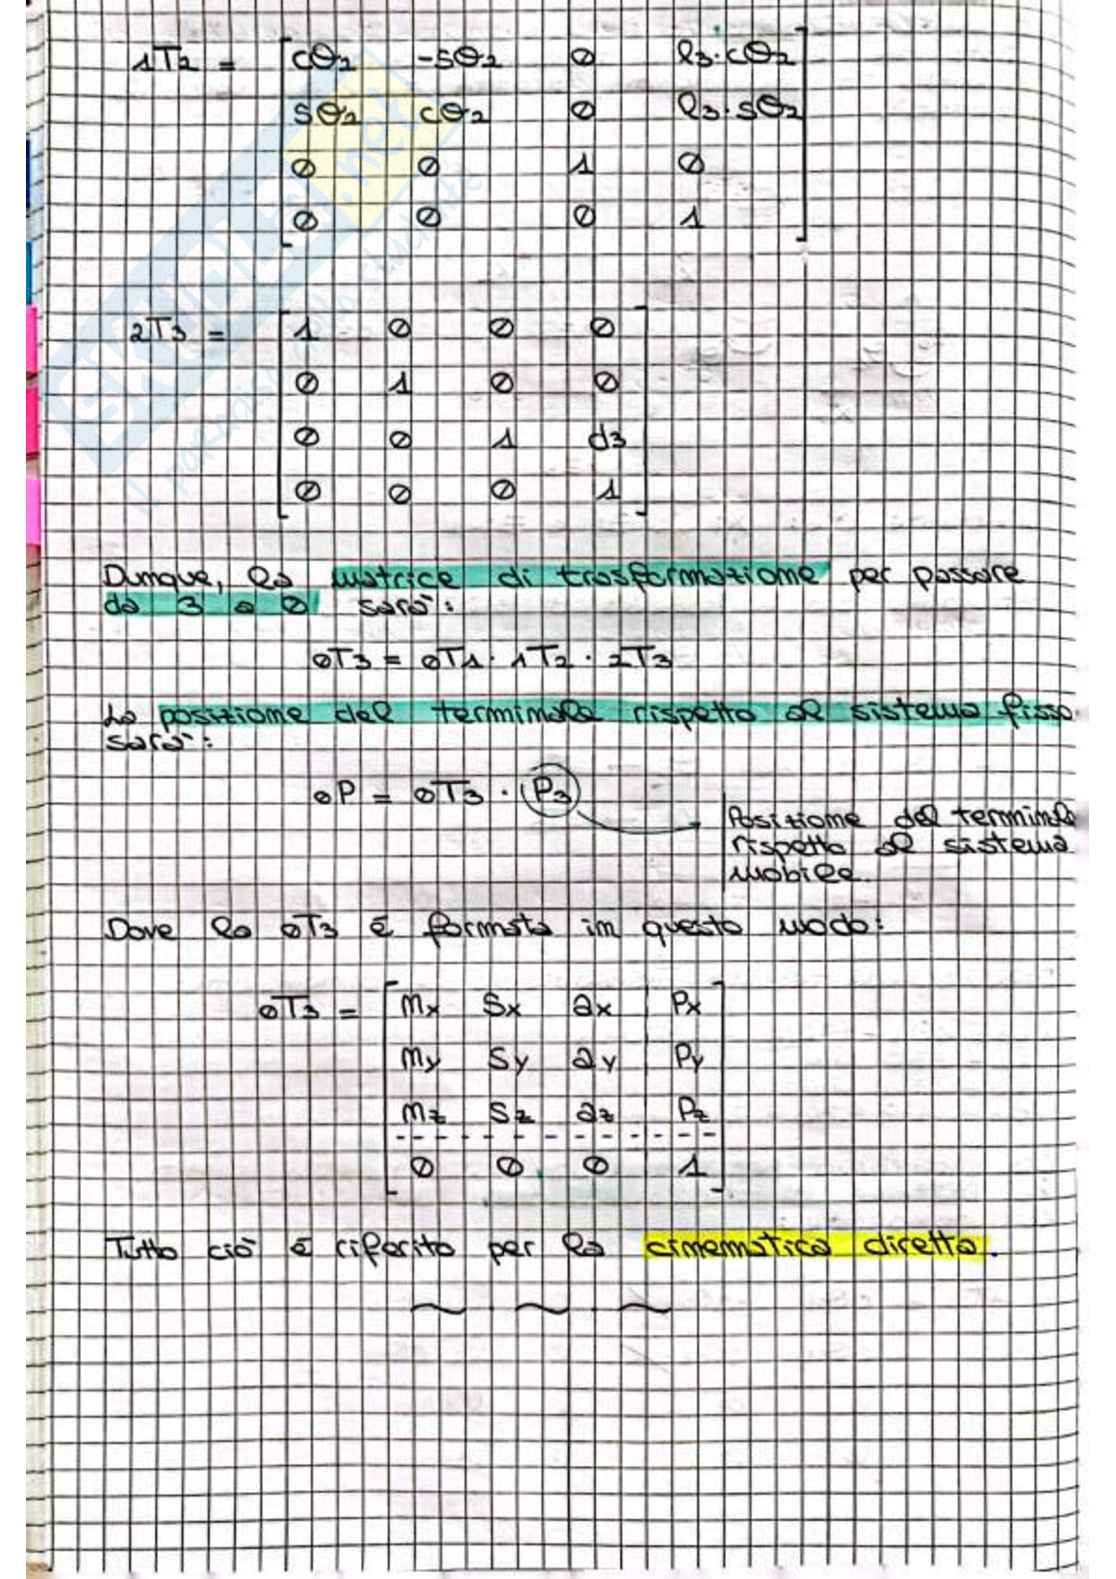 1T2 = [cθ2 -sθ2 0 l3·cθ2
sθ2 cθ2 0 l3·sθ2
0 0 1 0
0 0 0 1]
2T3 = [1 0 0 0
0 1 0 0
0 0 1 d3
0 0 0 1]
Dunque, la matrice di trasformazione per passare
da 3 a 0 sarà:
0T3 = 0T1 · 1T2 · 2T3
La posizione del terminale rispetto al sistema fisso
sarà:
0P = 0T3 · P3
Posizione del terminale
rispetto al sistema
mobile.
Dove la 0T3 è formata in questo modo:
0T3 = [nx sx ax Px
ny sy ay Py
nz sz az Pz
0 0 0 1]
Tutto ciò è riferito per la cinematica diretta.